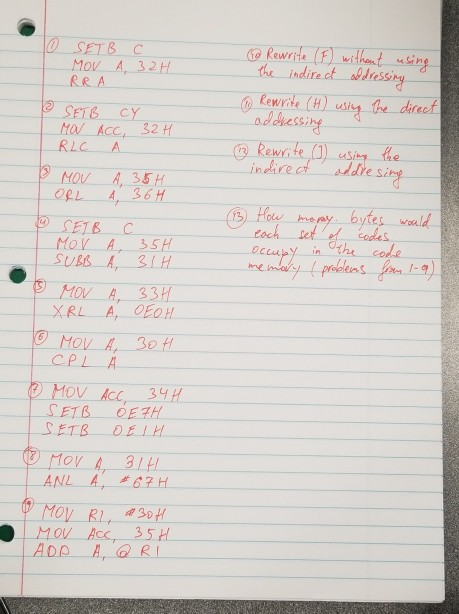 ① SETB C
MOV A, 32H
RRA
② SETB CY
MOV ACC, 32H
RLC A
③ MOV A, 35H
ORL A, 36H
④ SETB C
MOV A, 35H
SUBB A, 31H
⑤ MOV A, 33H
XRL A, 0E0H
⑥ MOV A, 30H
CPL A
⑦ MOV ACC, 34H
SETB 0E7H
SETB 0E1H
⑧ MOV A, 31H
ANL A, #67H
⑨ MOV R1, #30H
MOV ACC, 35H
ADD A, @ R1
⑩ Rewrite (F) without using
the indirect addressing
⑪ Rewrite (H) using the direct
addressing
⑫ Rewrite (I) using the
indirect addresing
⑬ How many bytes would
each set of codes
occupy in the code
memory (problems from 1-9)